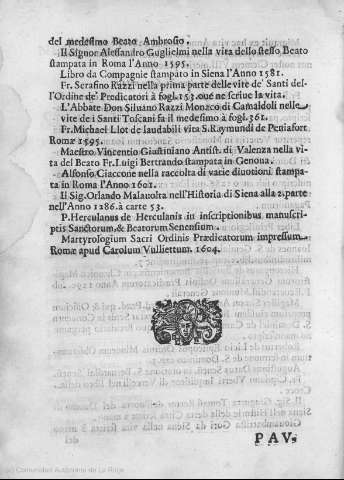 del medesimo Beato Ambrosio.
Il Signor Alessandro Guglielmi nella vita dello stesso Beato
stampata in Roma l'Anno 1595.
Libro da Compagnie stampato in Siena l'Anno 1581.
Fr. Serafino Razzi nella prima parte delle vite de' Santi del-
l'Ordine de' Predicatori à fogl. 153. oue ne scriue la vita.
L'Abbate Don Siluano Razzi Monaco di Camaldoli nelle
vite de i Santi Toscani fa il medesimo à fogl. 361.
Fr. Michael Llot de laudabili vita S. Raymundi de Peniafort
Romæ 1595.
Maestro Vincentio Giustiniano Antist. di Valenza nella vi-
ta del Beato Fr. Luigi Bertrando stampata in Genoua.
Alfonso Ciaccone nella raccolta di varie diuotioni stampa-
ta in Roma l'Anno 1601.
Il Sig. Orlando Malauolta nell'Historia di Siena alla 2. parte
nell'Anno 1286. à carte 53.
P. Herculanus de Herculanis in inscriptionibus manuscri-
ptis Sanctorum, & Beatorum Senensium.
Martyrologium Sacri Ordinis Prædicatorum impressum
Romæ apud Carolum Vulliettum. 1604.
PAV.
(c) Comunidad Autónoma de La Rioja